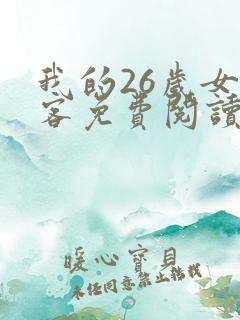 我的26歲女
客免費閱讀
暖心寶貝
未经同意禁止转载